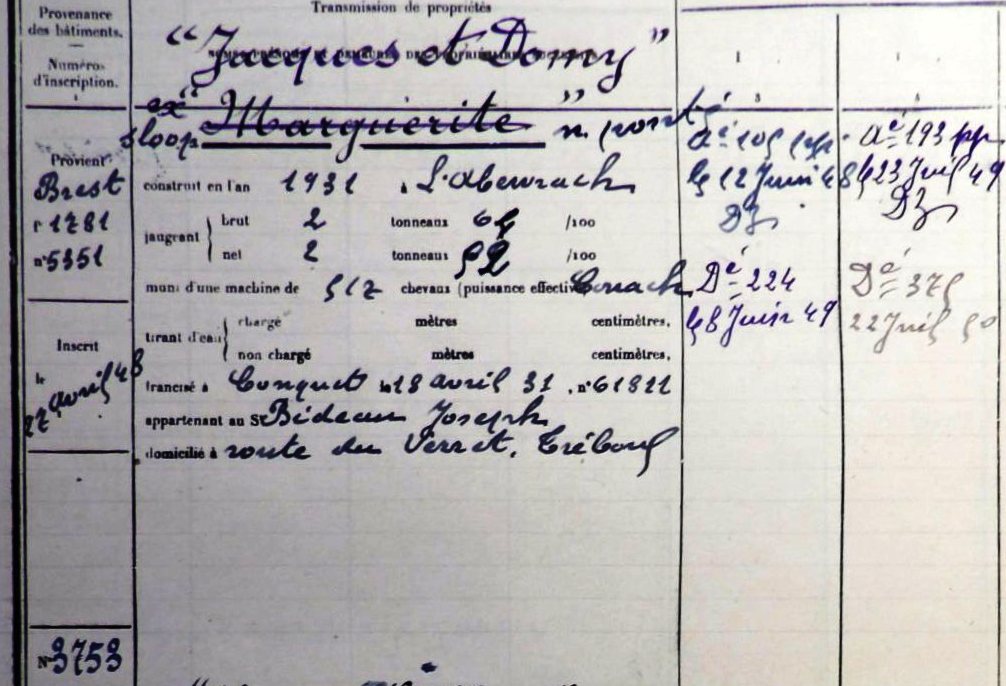 Provenance
des bâtiments.
Numéros
d'inscription.
1
Transmission de propriétés
"Jacques et Domy"
ex "Marguerite"
sloop n. ponté
Provient
Brest
f° 1281
n° 5351
construit en l'an 1931 à L'Aberwrach
jaugeant
brut 2 tonneaux 64 /100
net 2 tonneaux 52 /100
muni d'une machine de 5/7 chevaux (puissance effective)
tirant d'eau
chargé mètres centimètres.
non chargé mètres centimètres.
Inscrit
le
27 avril 48
francisé à Conquet le 18 avril 31, n° 61821
appartenant au Sr Bideau Joseph
domicilié à route du Verret, Tréboul
N° 3753
1
3
Aé 105 pp.
le 12 Juin 48
Dz
Dé 224
le 8 Juin 49
5
Aé 193 pp.
le 23 Juil 49
Dz
Dé 375
22 Juil 50